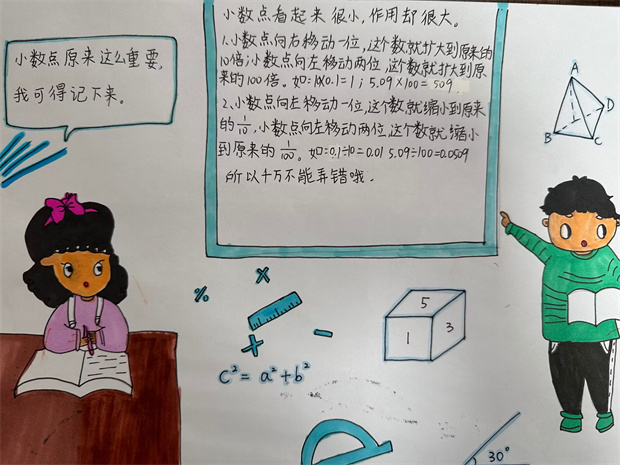 小数点原来这么重要,
我可得记下来。
小数点看起来很小,作用却很大。
1.小数点向右移动一位,这个数就扩大到原来的
10倍;小数点向左移动两位,这个数就扩大到原
来的100倍。如:1×0.1=1;5.09×100=509
2.小数点向左移动一位,这个数就缩小到原来
的1/10,小数点向左移动两位,这个数就缩小
到原来的1/100。如:0.1÷10=0.01 5.09÷100=0.0509
所以千万不能弄错哦.
A
B
C
D
%
×
+
−
5
1
3
c²=a²+b²
30°